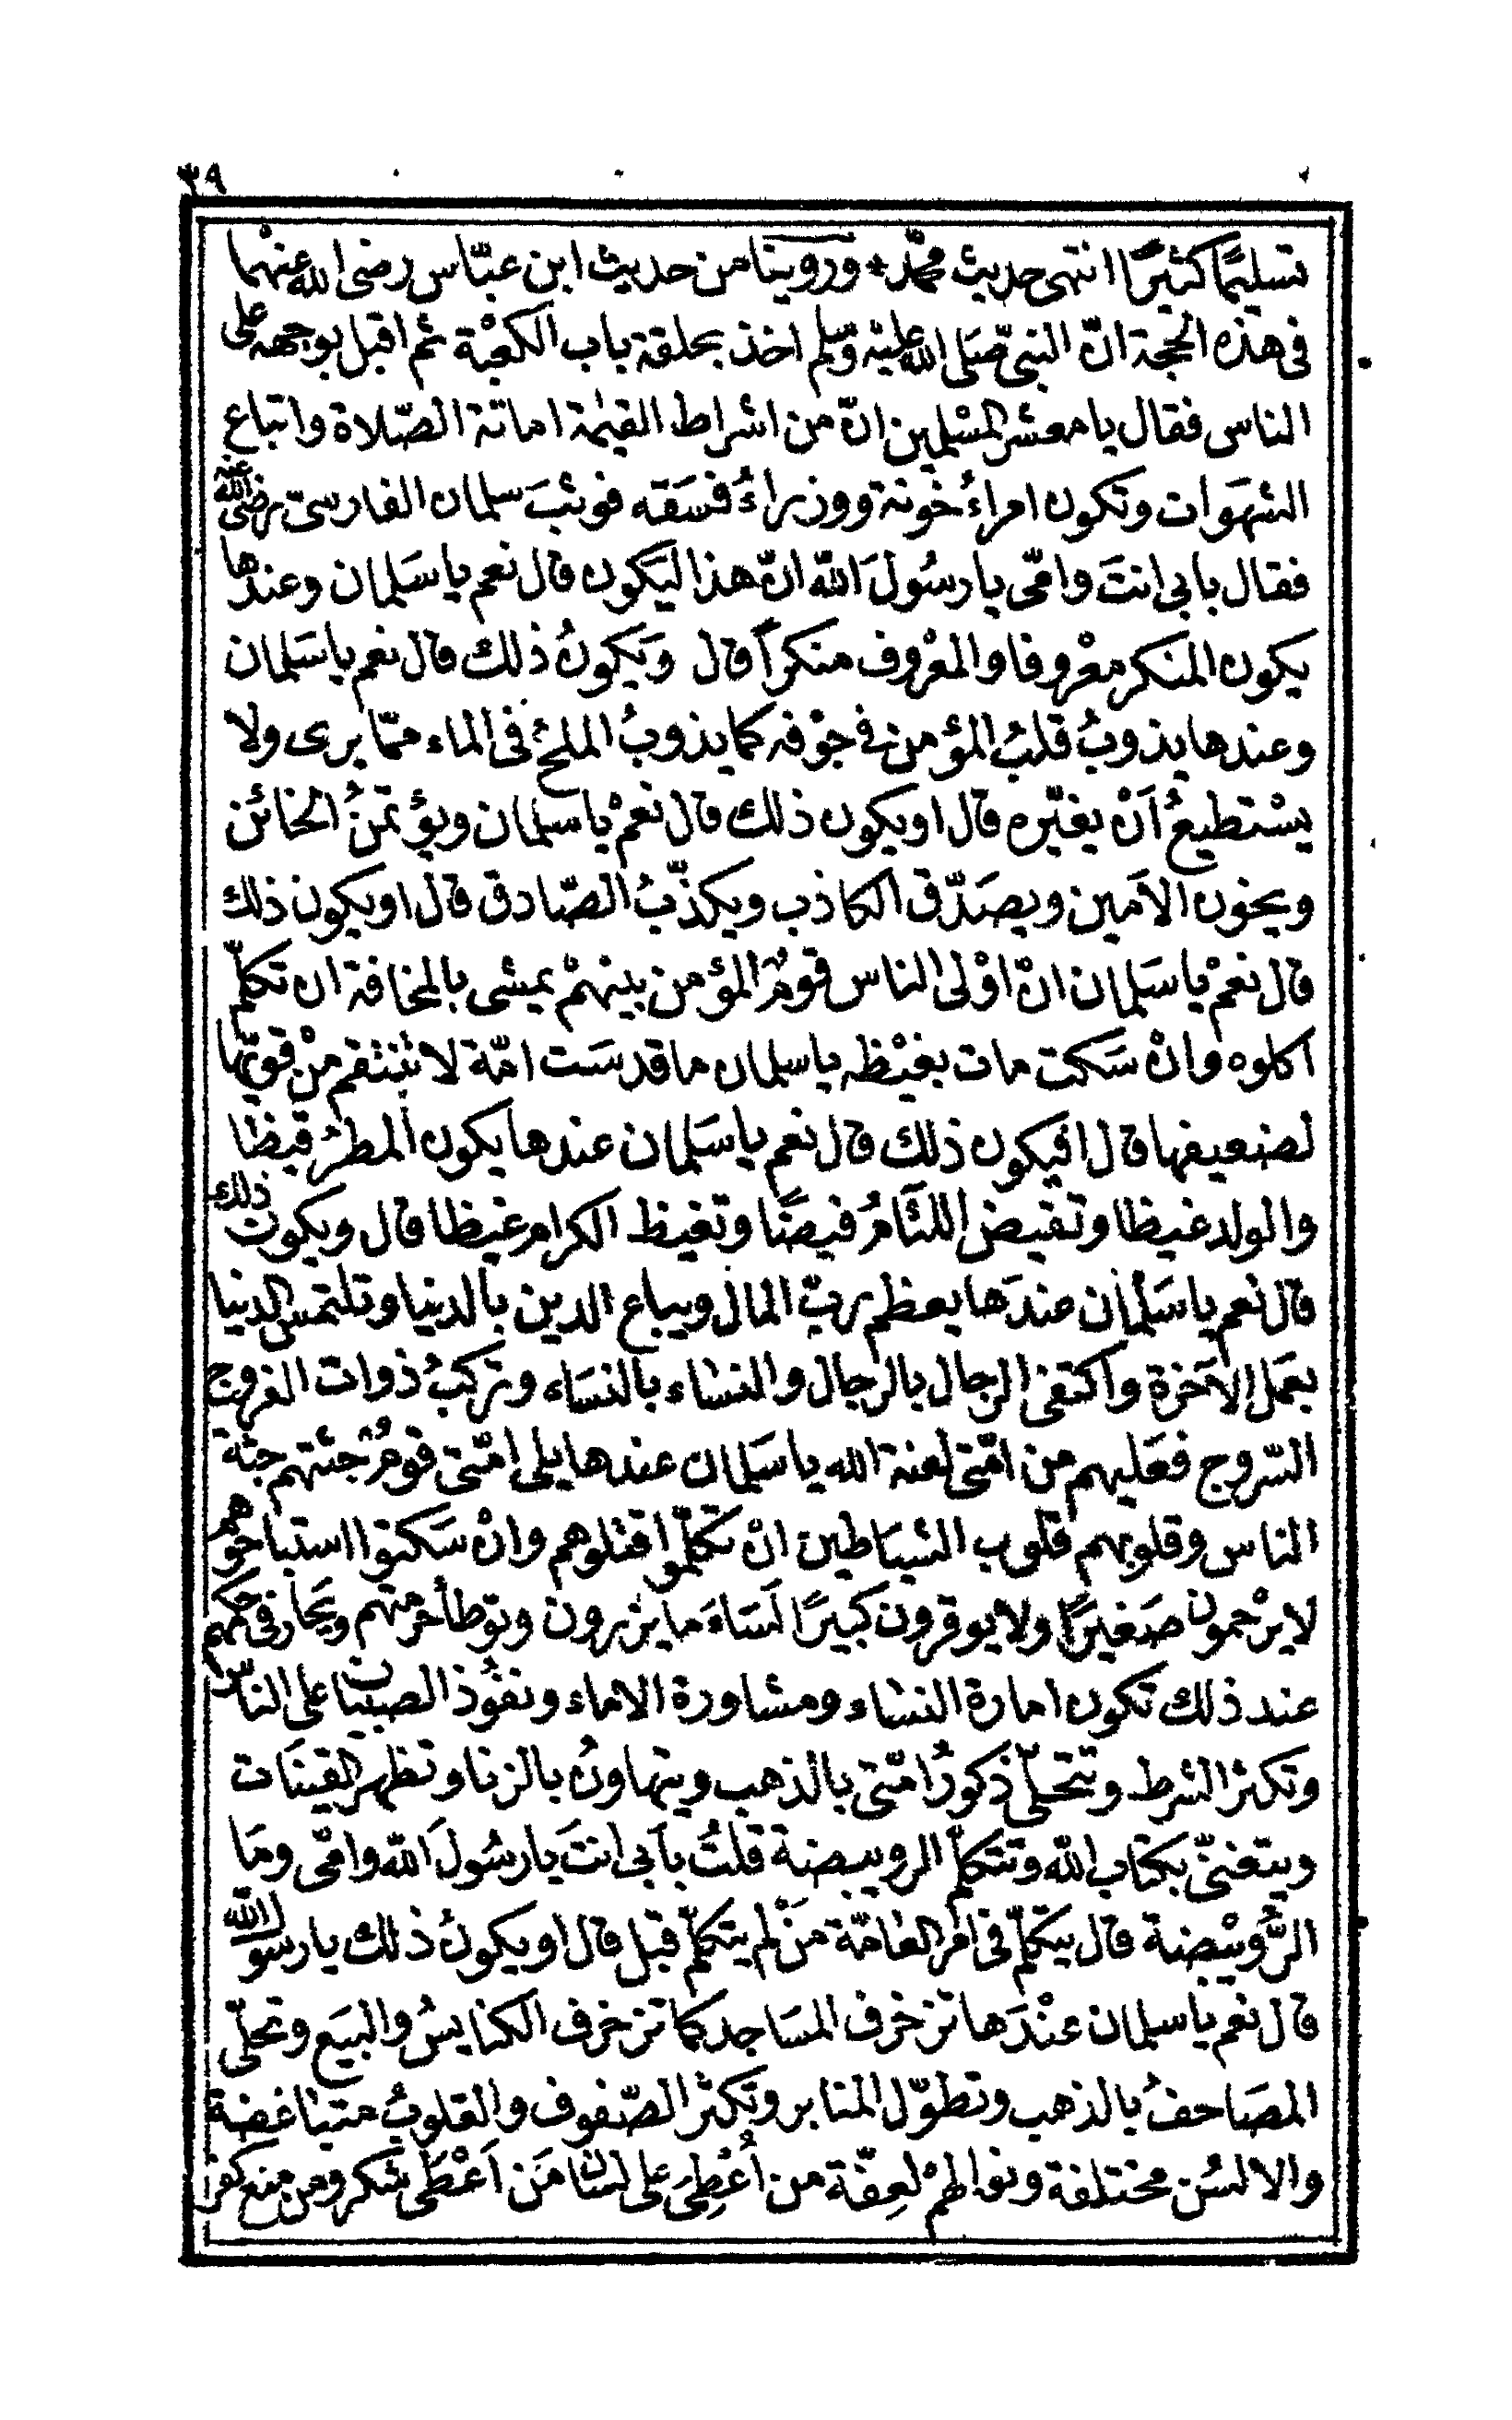 ٣٩
تسليمًا كثيرًا انتهى حديث محمّد * وروينا من حديث ابن عبّاس رضى الله عنهما
فى هذه الحجة انّ النبىّ صَلى الله عليْه وسّلم اخذ بحلقة باب الكعْبة ثم اقبل بوجهه على
الناس فقال يا معشر المسْلمين انّ من اشراط القيٰمة اماتة الصّلاة واتباع
الشهَوات وتكون امراءُ خونة ووزراءُ فسَقه فوثبَ سلمان الفارسىّ رضى الله عنه
فقال بابى انتَ وامّى يا رسُولَ الله انّ هذا ليَكون قال نعم يا سَلمان وعندها
يكون المنكر معْروفا والمعْروف منكراً قال وَيكونُ ذلك قال نعم يا سَلمان
وعندها يذوبُ قلبُ المؤمن فى جوْفه كما يذوبُ الملحُ فى الماء ممّا يرى ولا
يسْتطيعُ اَنْ يغيّره قال اويكون ذلك قال نعمْ يا سلمان ويؤتمنُ الخائن
ويخون الامَين ويصَدّق الكاذب ويكذّبُ الصّادق قال اويكون ذلك
قال نعمْ يا سَلمان انّ اوْلى الناس قومٌ المؤمن بينهمْ يمشى بالمخافة ان تكلمّ
اكلوه وانْ سَكت مات بغيْظه يا سلمان ما قدسَت امّة لا ينتقم منْ قويّها
لضعيفها قال افيكون ذلك قال نعم يا سَلمان عندها يكون المطرُ قيظا
والولد غيظا وتفيض اللئامُ فيضًا وتغيظ الكرام غيظا قال ويكون ذلك
قال نعم يا سَلمان عندَها يعظم ربّ المال ويباع الدين بالدنيا وتلتمس الدنيا
بعَمل الآخرة واكتفى الرجال بالرجال والنساء بالنسَاء وتركبُ ذوات الفروج
السّروج فعَليهم من امّتى لعنة الله يا سَلمان عندها يلى امّتى قومٌ جثتهم جثة
الناس وقلوبهم قلوب الشيَاطين انْ تكلّموا قتلوهم وانْ سَكتوا استباحوهم
لا يرْحمون صَغيرًا ولا يوقرون كبيرًا اَسَاءَ ما يزرون وتوطأ حرمتهم ويَجار فى حكمهم
عند ذلك تكون امارة النساء ومشاورة الاماء ونفوُذ الصبيان على الناس
وتكثر الشرط وتتحلىّ ذكورُ امّتى بالذهب ويتهاونُ بالزنا وتظهر القينَات
ويتغنىّ بكتاب الله وتتكلّم الرويبضة قلتُ بابَى انتَ يا رسُولَ الله وامّى ومَا
الرُّوَيْبضة قال يتكلمّ فى امْر العامّة مَنْ لم يتكلمّ قبل قال اويكونُ ذلك يا رسول الله
قال نعم يا سلمان عنْدَها تزخرف المسَاجد كما تزخرف الكنايسُ والبيَع وتحلّى
المصَاحفُ بالذهب وتطوّل المنابر وتكثر الصّفوف والقلوبُ متباغضة
والالسُن مختلفة ونوالهمْ لعِقّة من اُعْطِىَ على لسان مَن اَعْطَى شكر ومن منع كفر